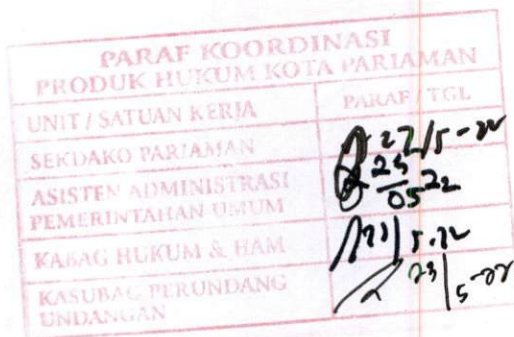 PARAF KOORDINASI
PRODUK HUKUM KOTA PARIAMAN
UNIT / SATUAN KERJA PARAF / TGL
SEKDAKO PARIAMAN 27/5-22
ASISTEN ADMINISTRASI
PEMERINTAHAN UMUM 25/05 22
KABAG HUKUM & HAM 5-22
KASUBAG PERUNDANG
UNDANGAN 23/5-22